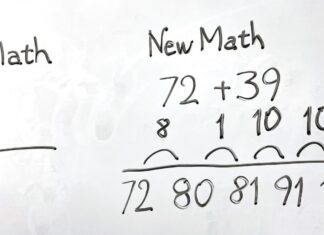 New Math
72 + 39
8 1 10 10
72 80 81 91